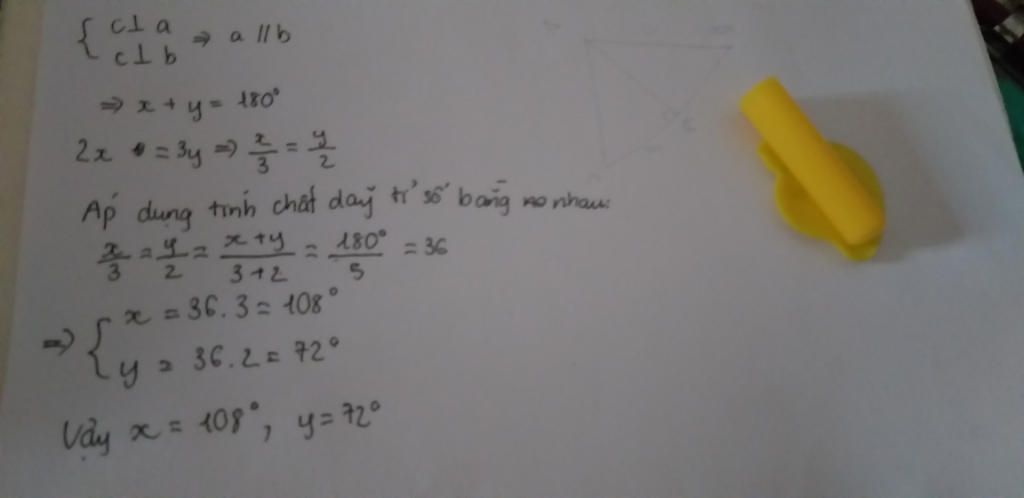 { c⊥a ⇒ a // b
c⊥b
⇒ x + y = 180°
2x = 3y ⇒ x/3 = y/2
Áp dụng tính chất dãy tỉ số bằng nhau:
x/3 = y/2 = x+y/3+2 = 180°/5 = 36
⇒ { x = 36.3 = 108°
y = 36.2 = 72°
Vậy x = 108°, y = 72°